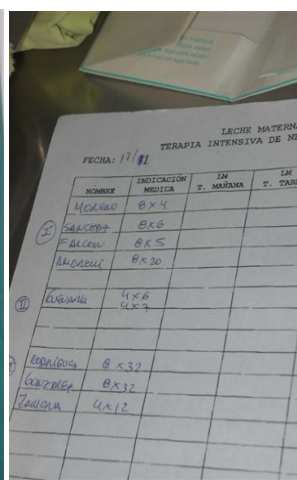 LECHE MATERNA
TERAPIA INTENSIVA DE NE
FECHA: 17/11
NOMBRE INDICACIÓN MEDICA LM T. MAÑANA LM T. TARD
MORENO 8 x 4
I SANCHEZ 8x6
FALCON 8x5
8x20
II 4x6
4x7
RODRIGUEZ 8x32
GONZALEZ 8x32
4x12